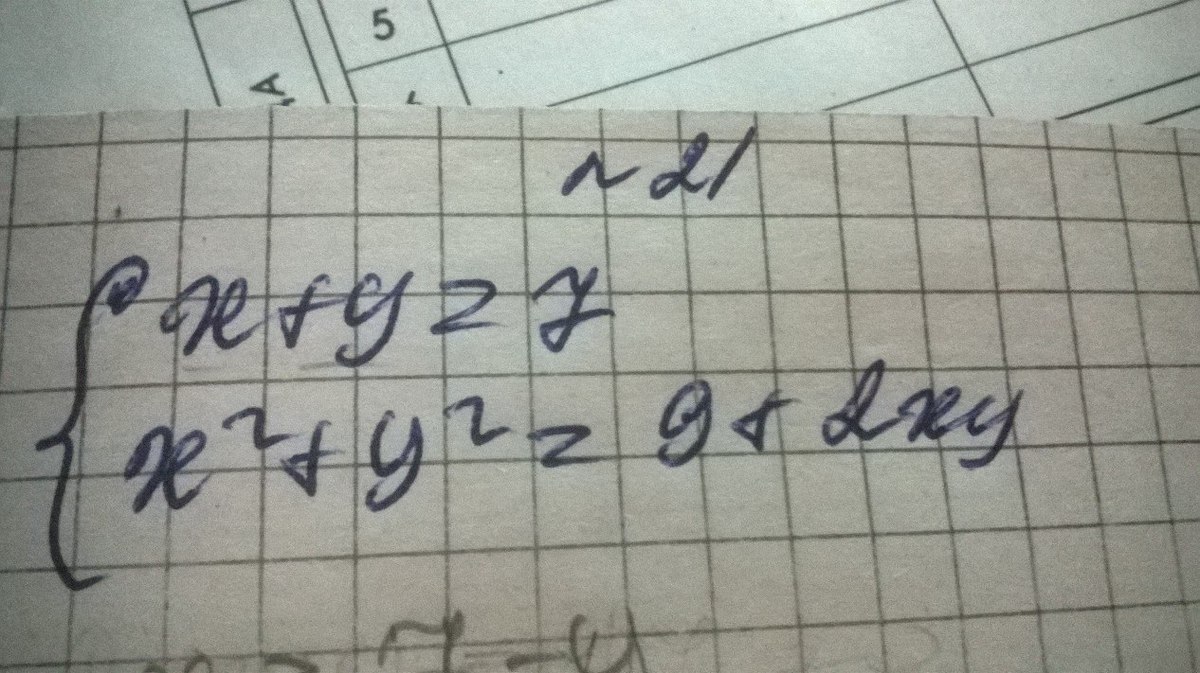 5
А
~ 21
x + y = 7
x² + y² = 9 + 2xy